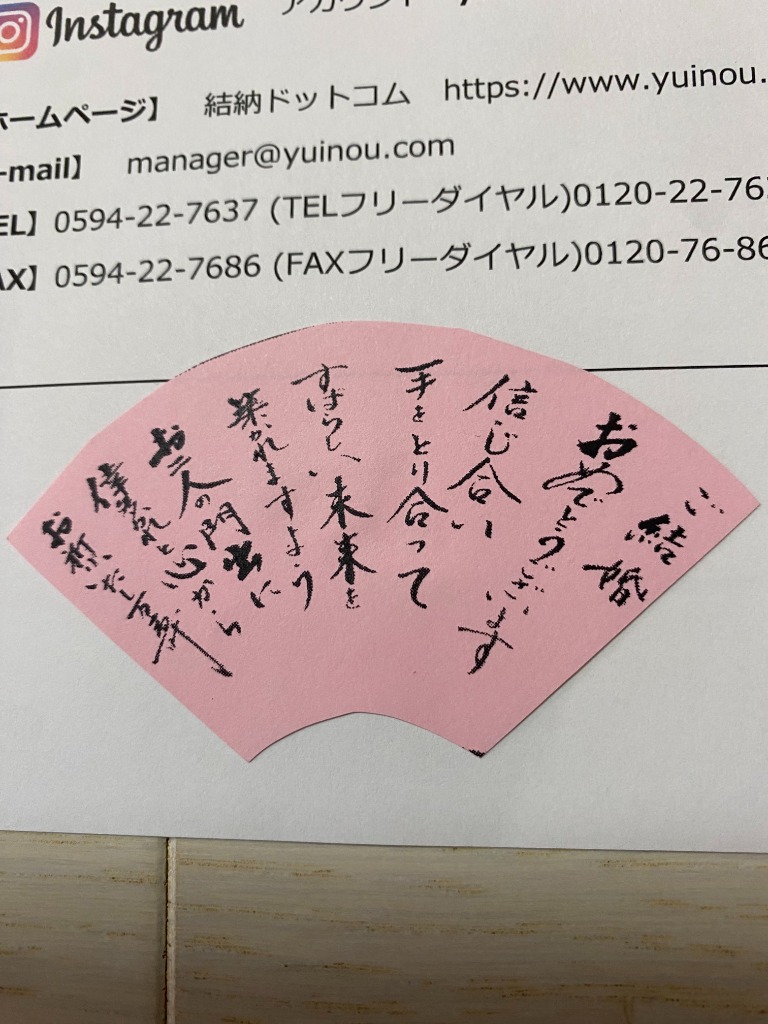 Instagram アカウント
ホームページ】 結納ドットコム https://www.yuinou.
-mail】 manager@yuinou.com
EL】0594-22-7637 (TELフリーダイヤル)0120-22-763
AX】0594-22-7686 (FAXフリーダイヤル)0120-76-86
ご結婚
おめでとうございます
信じ合い
手をとり合って
すばらしい未来を
築かれますよう
お二人の門出に
幸多かれと心から
お祈りいたします